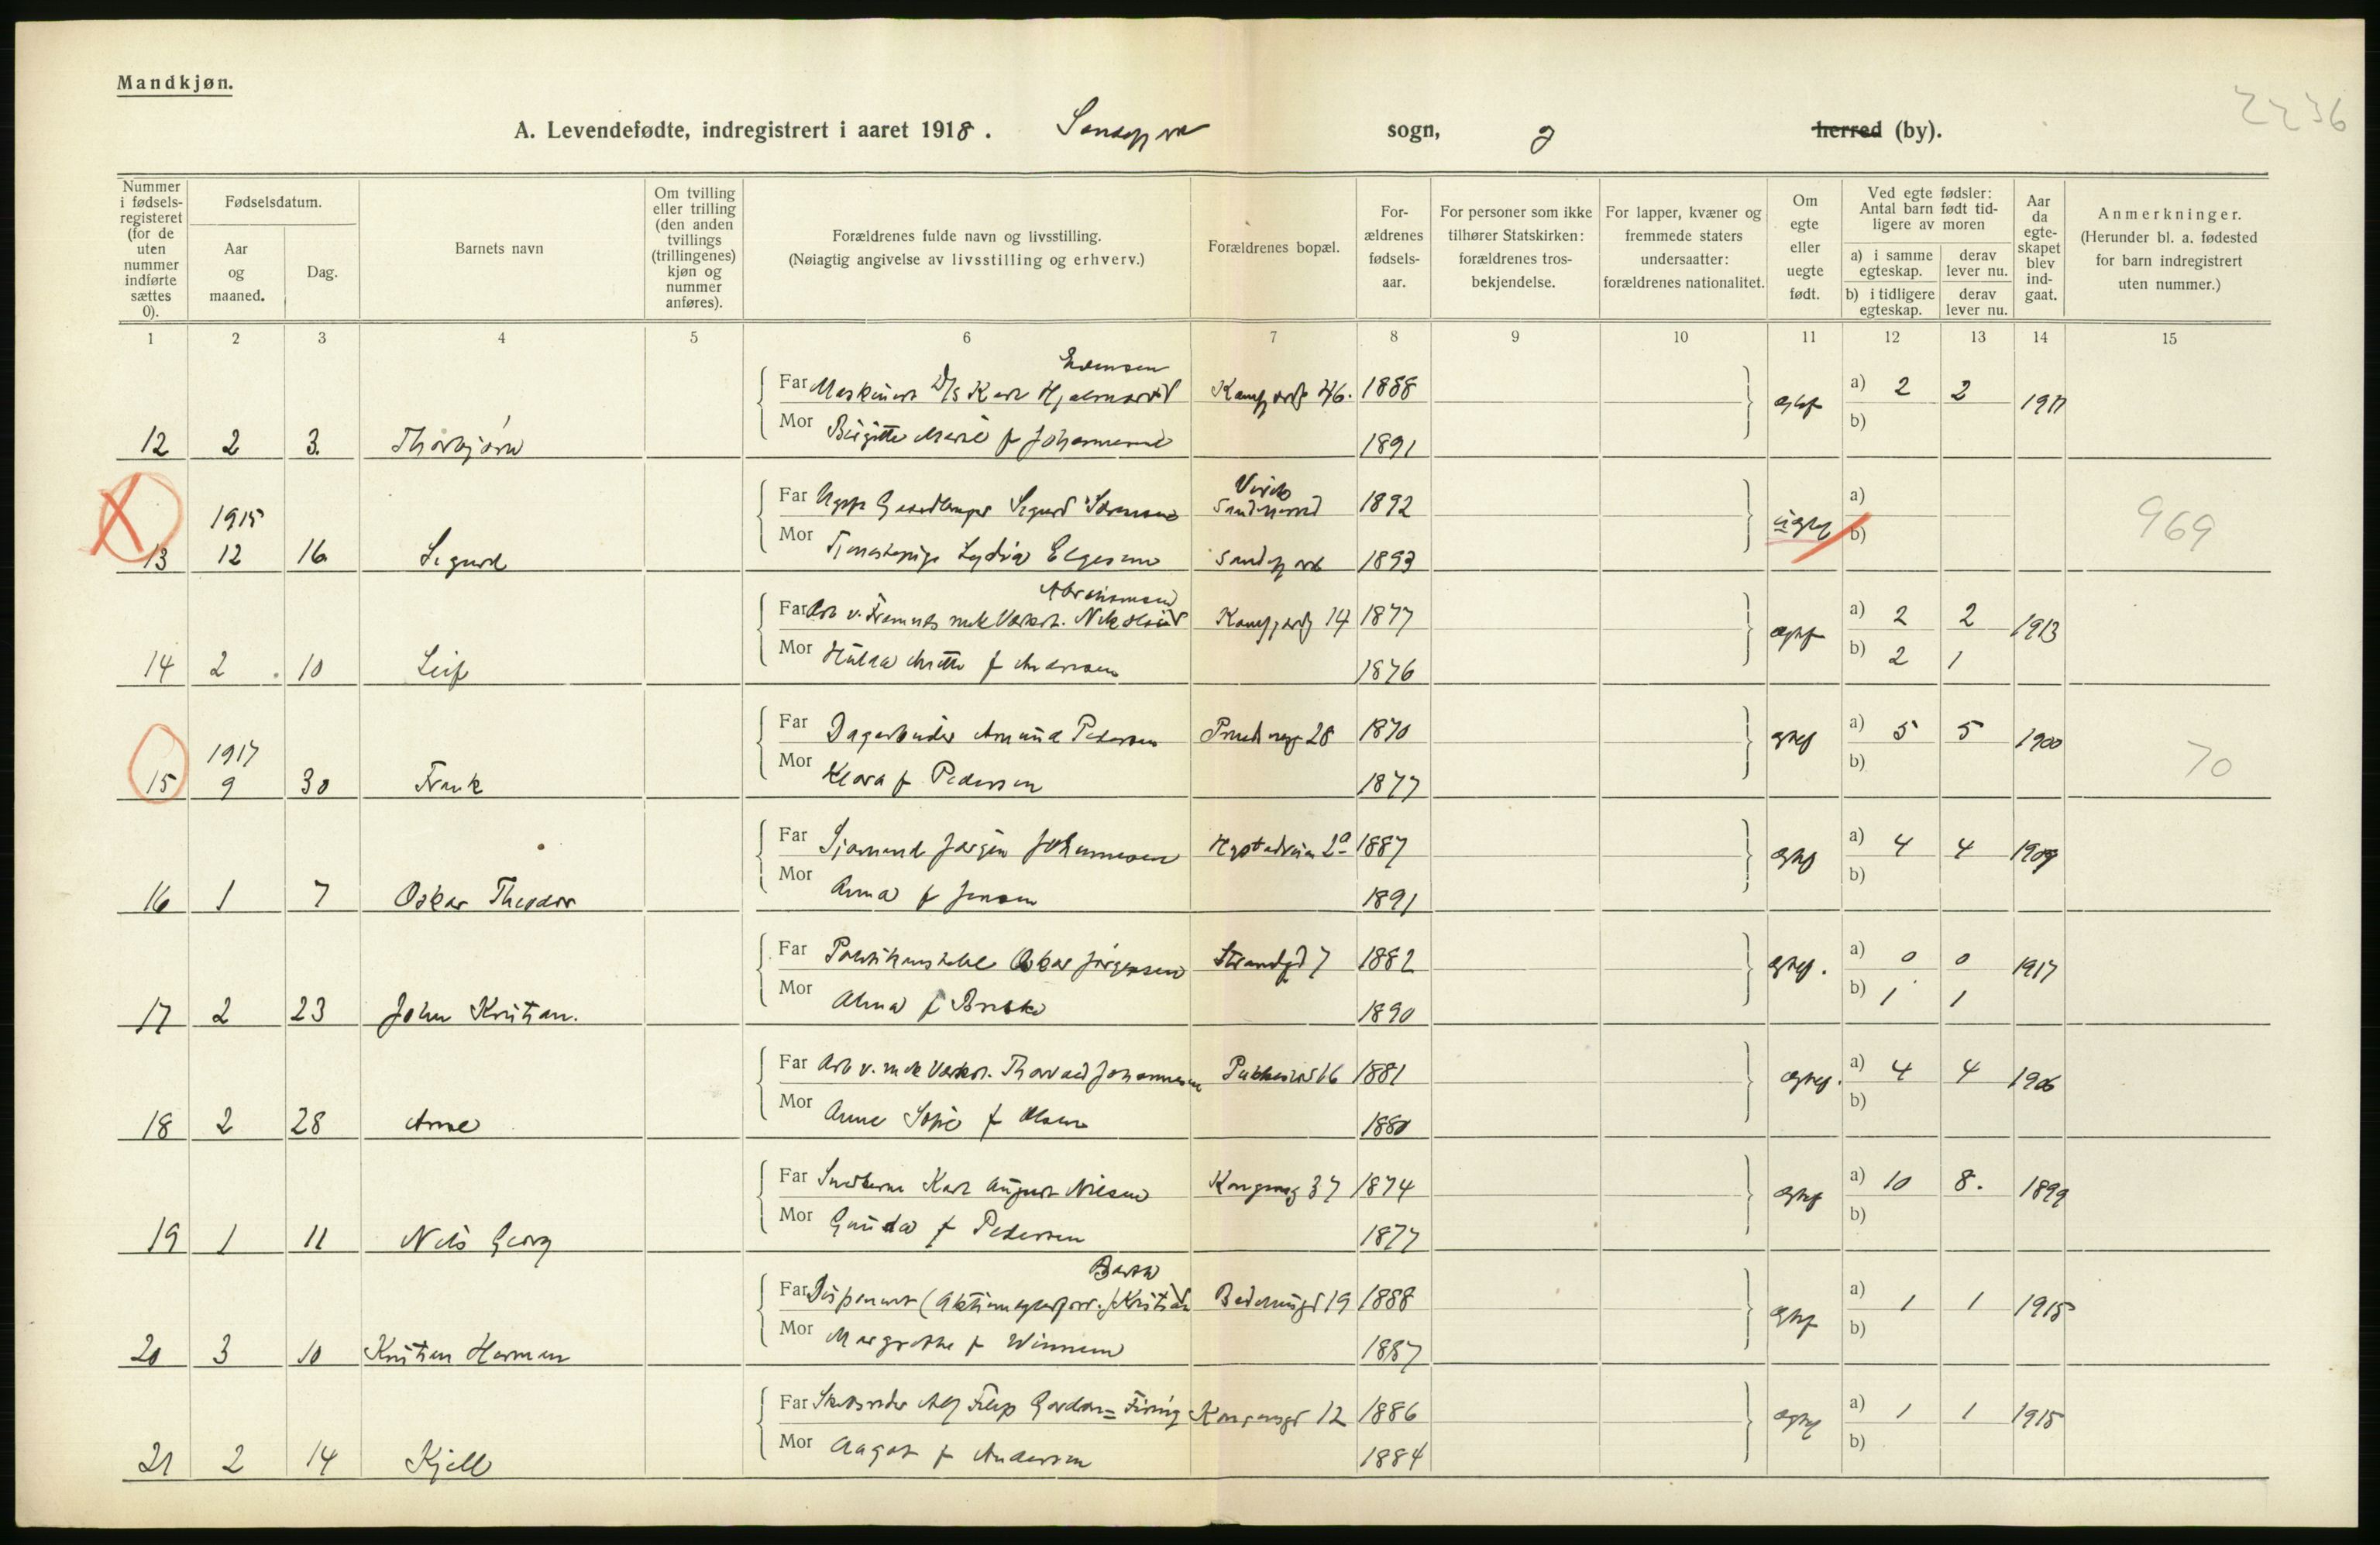 Mandkjøn.
2236
A. Levendefødte, indregistrert i aaret 1918. sogn, herred (by).
Nummer i fødselsregisteret (for de uten nummer indførte sættes 0).
Fødselsdatum.
Aar og maaned.
Dag.
Barnets navn
Om tvilling eller trilling (den anden tvillings (trillingenes) kjøn og nummer anføres).
Forældrenes fulde navn og livsstilling.
(Nøiagtig angivelse av livsstilling og erhverv.)
Forældrenes bopæl.
Forældrenes fødselsaar.
For personer som ikke tilhører Statskirken: forældrenes trosbekjendelse.
For lapper, kvæner og fremmede staters undersaatter: forældrenes nationalitet.
Om egte eller uegte født.
Ved egte fødsler: Antal barn født tidligere av moren
a) i samme egteskap.
derav lever nu.
b) i tidligere egteskap.
derav lever nu.
Aar da egteskapet blev indgaat.
Anmerkninger.
(Herunder bl. a. fødested for barn indregistrert uten nummer.)
1 2 3 4 5 6 7 8 9 10 11 12 13 14 15
Far Karl Hjalmar 46. 1888 a) 2 2 1911
12 2 3. Thorbjørn Mor Birgitte Marie f Johannesen 1891 b)
Far Sigurd Sørensen 1892 a)
1915
13 12 16 Sigurd Mor Tjenestepige Lydia Elgesem 1893 b) 969
Abrahamsen
Far Arb v. Framnes mek Værkst. Nikolai 14 1877 a) 2 2 1913
14 2 10 Leif Mor Hulda f Andersen 1876 b) 2 1
Far Dagarbeider Amund Pedersen 28 1870 a) 5 5 1900
1917
15 9 30 Frank Mor Klara f Pedersen 1877 b) 70
Far Sjømand Jørgen Johannesen 1887 a) 4 4 1909
16 1 7 Oskar Theodor Mor Anna f Jensen 1891 b)
Far Politikonstabel Oskar Jørgensen Strandgd 7 1882 a) 0 0 1917
17 2 23 John Kristian. Mor Alma f 1890 b) 1 1
Far Arb v. mek Værkst. Thorvald Johannesen 16 1881 a) 4 4 1906
18 2 28 Arne Mor Anne Sofie f Olsen 1880 b)
Far Karl August Nilsen Kongensg 37 1874 a) 10 8. 1899
19 1 11 Nils Georg Mor Gunda f Pedersen 1877 b)
Far Kristian 19 1888 a) 1 1 1915
20 3 10 Kristian Herman Mor Margrethe f 1887 b)
Far Alf Filip Gordon = Kongensgt 12 1886 a) 1 1 1915
21 2 14 Kjell Mor Aagot f Andersen 1884 b)